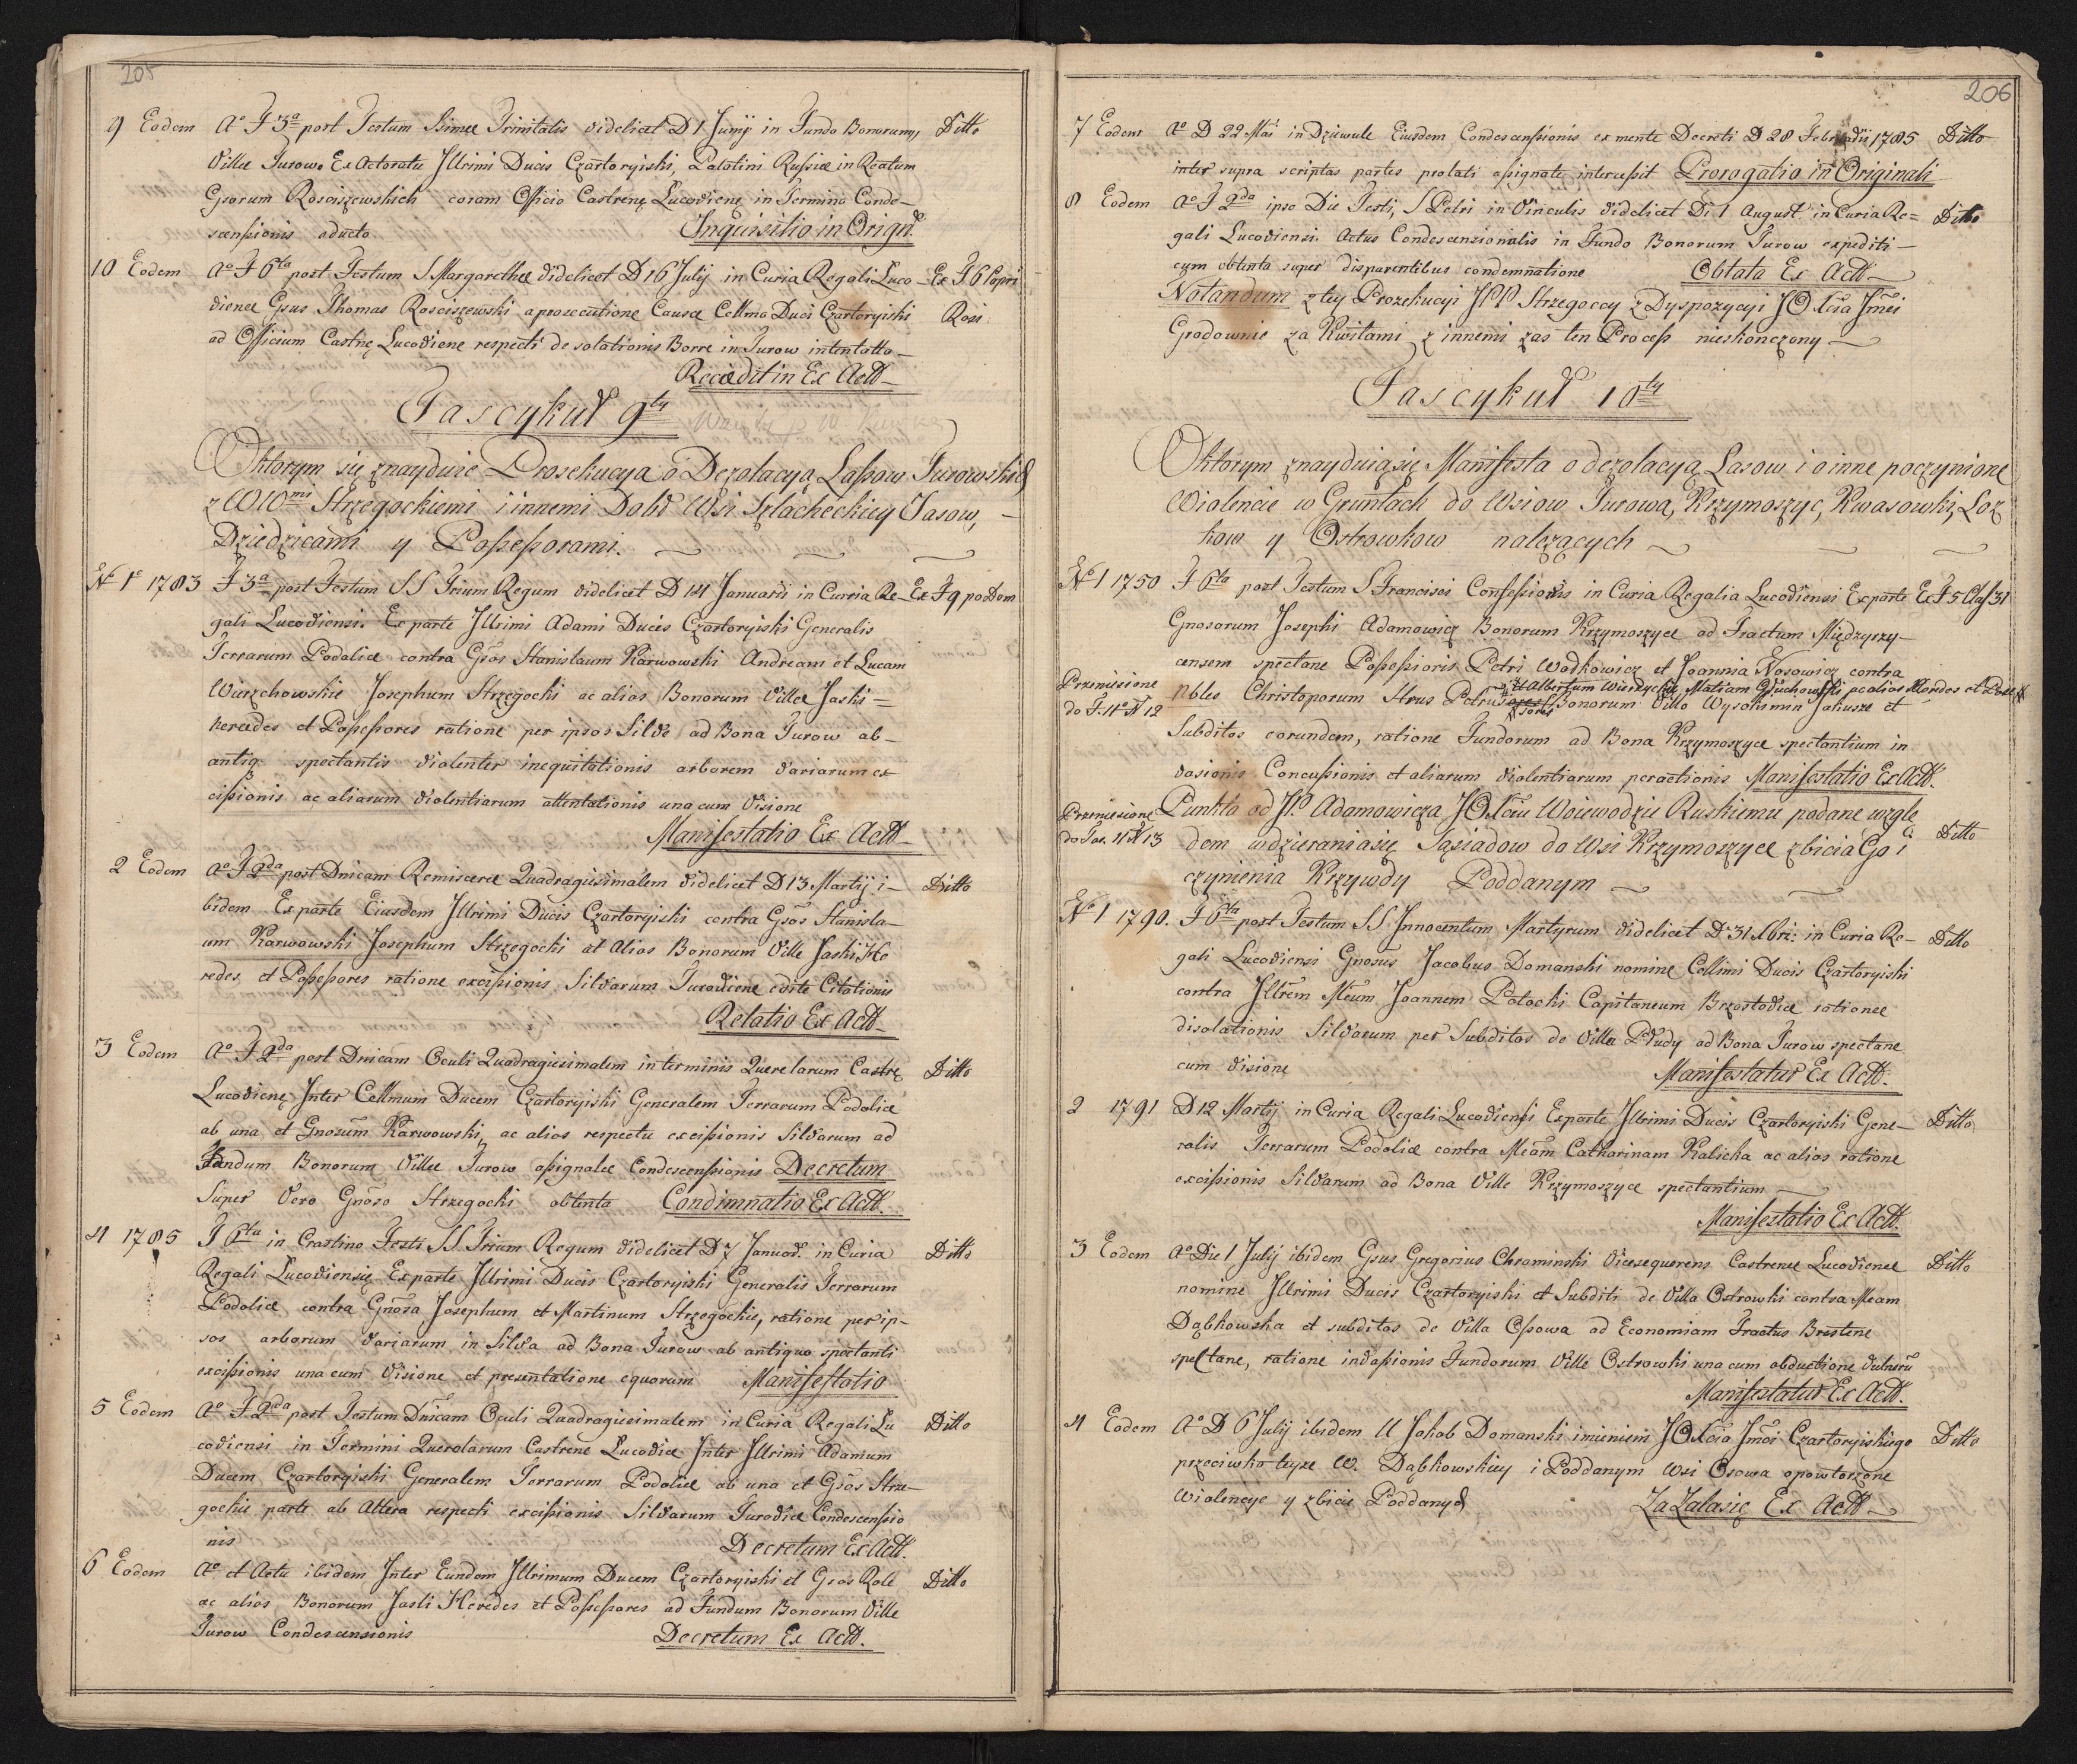 205
9 Eodem Aº F 3ª post Festum Ssimæ Trinitatis videlicet D 1 Junÿ in Fundo Bonorum, Ditto
Villæ Jurow. Ex Actoratu Jllrimi Ducis Czartoryiski, Palatini Russiæ in Reatum
Gsorum Rosciszewskich coram Officio Castrenę Lucoviene in Termino Conde—
scensionis aducto Inquisitio in Origl.
10 Eodem Aº F 6ta post Festum S Margarethæ videlicet D 16 Julij in Curia Regali Luco— Ex F 6 Copri
vienæ Gsus Thomas Rosciszewski a prosecutione Causæ Cellmo Duci Czartoryiski Rosi
ad Officium Castnę Lucoviene respecti desolationis Borre in Jurow intentatto—
Recedit in Ex Actt—
Fascykuł 9ty
Wktorym się znayduie Prosekucya o Dezolacyą Lassow Jurowskich
z WW mi Strzegockiemi i innemi Dobr Wsi Szlacheckiey Jasow, —
Dziedzicami y Possessorami.
Nº 1º 1783 F 3ª post Festum SS Trium Regum videlicet D 14 Januarii in Curia Re— Ex F 9 po Dom
gali Lucoviensi. Ex parte Jllrimi Adami Ducis Czartoryiski Generalis
Terrarum Podoliæ contra Gsos Stanislaum Karwowski Andream et Lucam
Wierzchowskie Josephum Strzegocki ac alios Bonorum Villæ Jaski =
heredes et Possessores ratione per ipsos Silvæ ad Bona Jurow ab—
antiq. spectantis violenter inequitationis arborem variarum ex
cissionis ac aliarum violentiarum attentationis una cum Visione
Manifestatio Ex Actt—
2 Eodem Aº F 2da post Dnicam Reminiscere Quadragesimalem videlicet D 13 Martij i— Ditto
bidem Ex parte Eiusdem Jllrimi Ducis Czartoryiski contra Gsos Stanisla—
um Karwowski Josephum Strzegocki at Alios Bonorum Ville Jaski He
redes, et Possessores ratione excissionis Silvarum Juroviene edite Citationis
Relatio Ex Actt—
3 Eodem Aº F 2da post Dnicam Oculi Quadragesimalem in terminis Querelarum Castrę Ditto
Lucovienę Inter Cellmum Ducem Czartoryiski Generalem Terrarum Podoliæ
ab una et Gnosum Karwowski, ac alios respectu excissionis Silvarum ad
Fundum Bonorum Villæ Jurow assignatæ Condescenssionis Decretum
Super Vero Gnoso Strzegocki obtenta Condemnatio Ex Actt.
4 1785 F 6ta in Crastino Festi SS Trium Regum videlicet D 7 Januar. in Curia Ditto
Regali Lucoviensię Ex parte Jllrimi Ducis Czartoryiski Generalis Terrarum
Podoliæ contra Gnosa Josephum et Martinum Strzegockie, ratione per ip—
sos arborum variarum in Silva ad Bona Jurow ab antiquo spectanti
excissionis una cum Visione et presentatione equorum Manifestatio
5 Eodem Aº F 2da post Festum Dnicam Oculi Quadragesimalem in Curia Regali Lu Ditto
coviensi in Termini Querelarum Castrene Lucovice Inter Jllrimi Adamum
Ducem Czartoryiski Generalem Terrarum Podoliæ ab una et Gsos Strze—
gockie parte ab Altera respecti excissionis Silvarum Jurovice Condescenssio
nis Decretum Ex Actt.
6 Eodem Aº et Actu ibidem Inter Eundem Jllrimum Ducem Czartoryiski et Gsos Role Ditto
ac alios Bonorum Jasli Heredes et Possessores ad Fundum Bonorum Ville
Jurow Condescensionis Decretum Ex Actt.
206
7 Eodem Aº D 22 Mai in Dziewule Eiusdem Condescenssionis ex mente Decreti D 28 Februarii 1785 Ditto
inter supra scriptas partes prolati assignate intercessit Prorogatio in Originali
8 Eodem Aº F 2da ipso Die Festi, S Petri in Vinculis videlicet Di 1 August in Curia Re= Ditto
gali Lucoviensi. Actus Condescensionalis in Fundo Bonorum Jurow expediti—
cum obtenta super disparentibus condemnatione Oblata Ex Actt—
Notandum z tey Prozekucyi JPP Strzegoccy z Dyspozycyi JO Xcia Jmći
Grodownie za Kwitami z innemi zas ten Process nieskonczony—
Fascykuł 10ty
Wktorym znayduią się Manifesta o dezolacyą Lasow i o inne poczynione
Wiolencie w Gruntach do Wsiow Jurowa, Krzymoszyc, Kwasowki, Loz
kow y Ostrowkow nalezących
Nº 1 1750 F 6ta post Festum S Francisci Confessionis in Curia Regalia Lucoviensi Ex parte Ex F 5 Clas 31
Gnosorum Josephi Adamowicz Bonorum Krzymoszyce ad Tractum Międzyrzy—
censem spectane Possessioris Petri Wodkowicz et Joannia Nosowicz contra
Przeniesione do F. 11º Nº 12
Nbles Christoporum Strus Petrum et Albertum Wierzyckie, Matiam Głuchowski ac alios Heredes et Posse
sores Bonorum Villo Wysokimin Jakusze et
Subditos eorundem, ratione Fundorum ad Bona Krzymoszyce spectantium in
vasionis Concussionis et aliarum violentiarum peractionis Manifestatio Ex Actt.
Przeniesione do Fas. 11 Nº 13
Punkta od JP. Adamowicza JO Xciu Woiewodzie Ruskiemu podane wzglę
dem wdzierania się Sąsiadow do Wsi Krzymoszyce zbicia Go i Ditto
czynienia Krzywdy Poddanym
Nº 1 1790. F 6ta post Festum SS Innocentum Martyrum videlicet D 31 Xbris: in Curia Re— Ditto
gali Lucoviensi Gnosus Jacobus Domanski nomine Cellimi Ducis Czartoryiski
contra Jllrem Meum Joannem Potocki Capitaneum Brzostoviæ rationee
disolationis Silvarum per Subditos de Villa Pludy ad Bona Jurow spectane
cum visione Manifestatur Ex Actt.
2 1791 D 12 Martij in Curia Regali Lucoviensi Ex parte Jllrimi Ducis Czartoryiski Gene— Ditto
ralis Terrarum Podoliæ contra Meam Catharinam Kalicka ac alios ratione
excissionis Silvarum ad Bona Ville Krzymoszyce spectantium—
Manifestatio Ex Actt.
3 Eodem Aº Die 1 Julij ibidem Gsus Gregorius Chrominski Vicesegerens Castrenæ Lucovienæ Ditto
nomine Jllrimi Ducis Czartoryiski et Subditi de Villa Ostrowki contra Meam
Dąbkowska et subditos de Villa Ossowa ad Economiam Tractus Brestene
spectane, ratione invassionis Fundorum Ville Ostrowki una cum obductione vulnerū
Manifestatur Ex Actt.
4 Eodem Aº D 6 Julij ibidem U Jakob Domanski imieniem JO Xcia Jmći Czartoryiskiego Ditto
przeciwko teyze W. Dąbkowskiey i Poddanym Wsi Osowa opowtorzone
Wiolencye y zbicie Poddanych Za Zalasię Ex Actt—